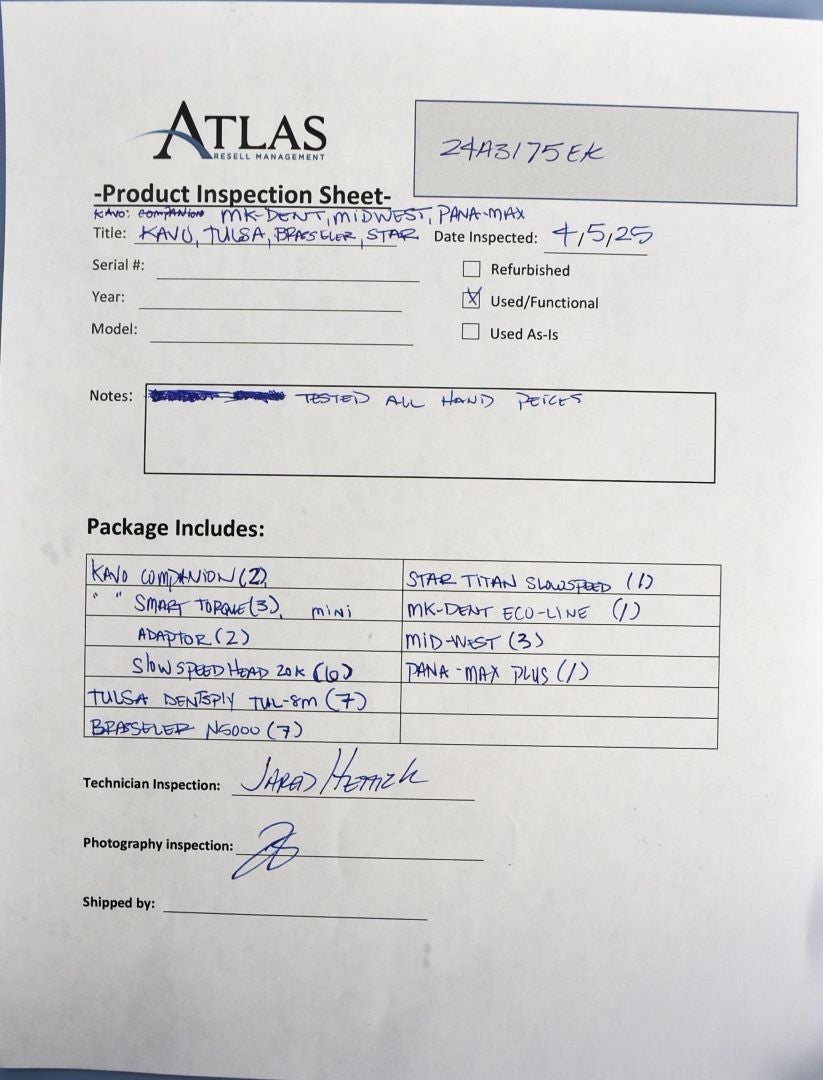 ATLAS
RESELL MANAGEMENT
24A3175EK
-Product Inspection Sheet-
KAVO: COMPANION MK-DENT, MIDWEST, PANA-MAX
Title: KAVO, TULSA, BRASSELER, STAR Date Inspected: 4/5/25
Serial #:
Refurbished
Year:
X Used/Functional
Model:
Used As-Is
Notes: TESTED ALL HAND PEICES
Package Includes:
KAVO COMPANION (2) STAR TITAN SLOWSPEED (1)
" " SMART TORQUE (3), mini MK-DENT ECO-LINE (1)
ADAPTOR (2) MID-WEST (3)
SLOWSPEED HEAD 20K (6) PANA-MAX PLUS (1)
TULSA DENTSPLY TUL-8M (7)
BRASSELER NS000 (7)
Technician Inspection: JARED
Photography inspection:
Shipped by: